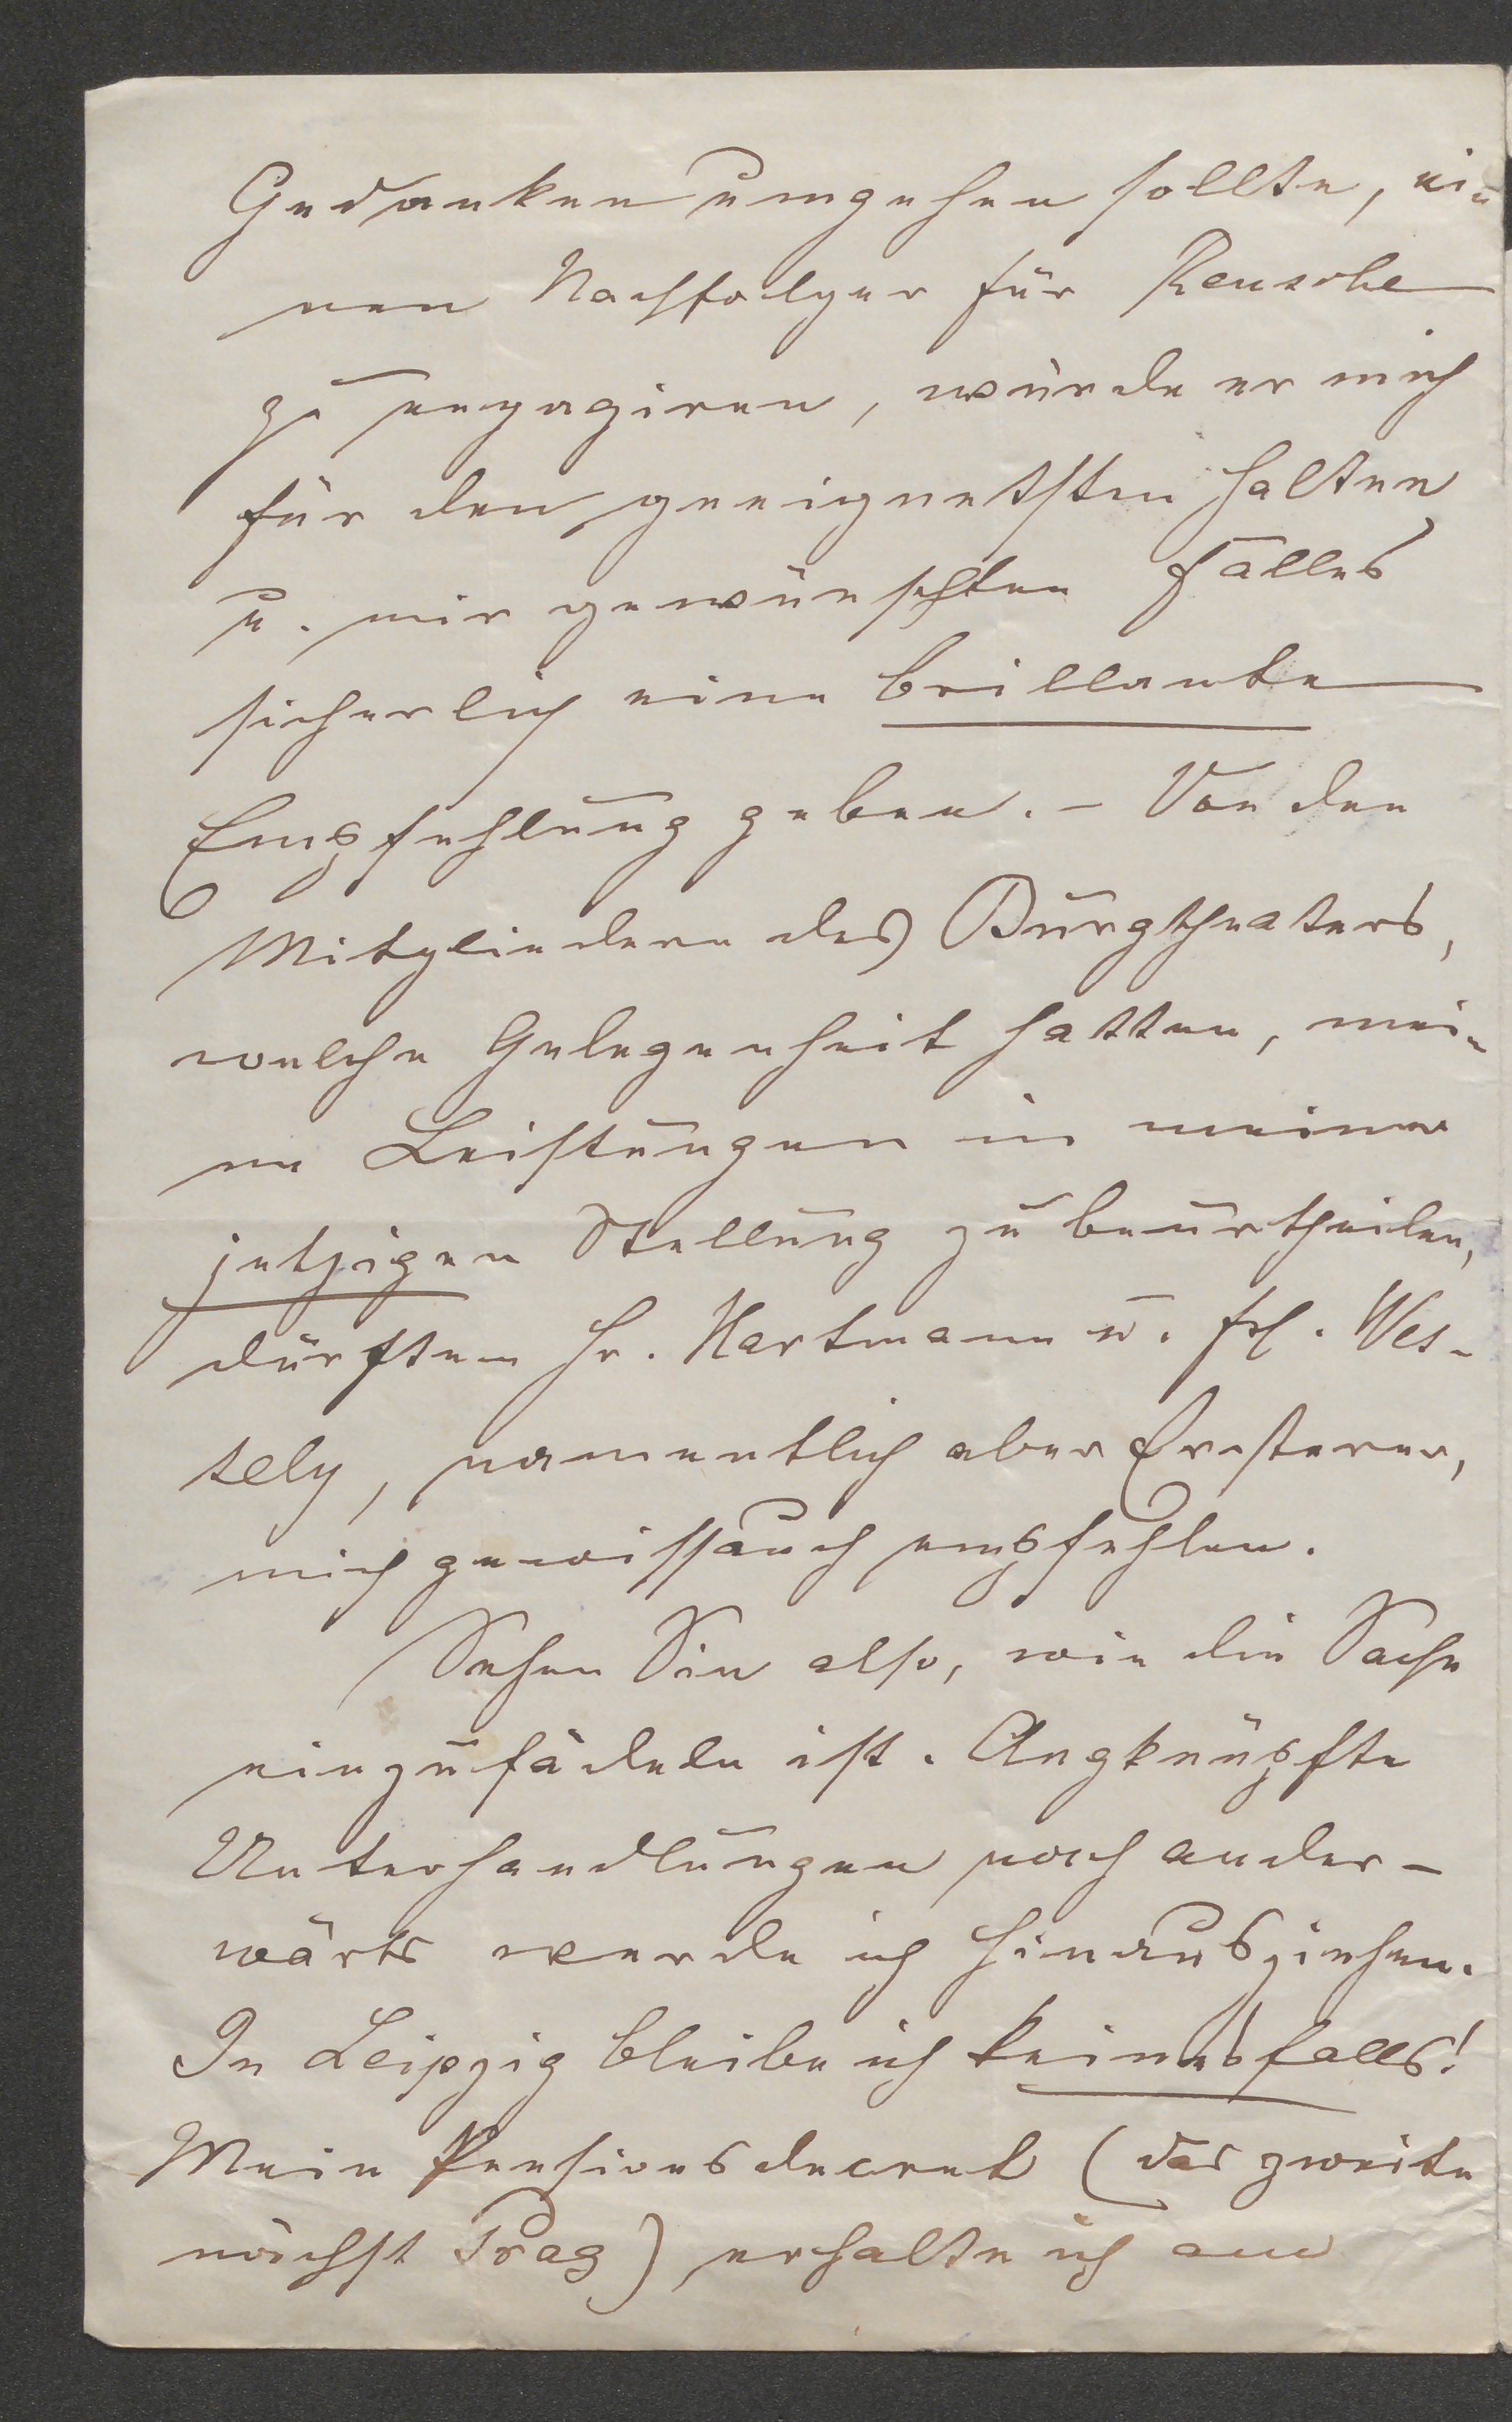 Gedanken umgehen sollte, ei-
nen Nachfolger für Reusche
zu engagiren, würde er mich
für den geeignetsten halten
u. mir gewünschten Falles
sicherlich eine brillante
Empfehlung geben. – Von den
Mitgliedern des Burgtheaters,
welche Gelegenheit hatten, mei-
ne Leistungen in meiner
jetzigen Stellung zu beurtheilen,
dürften Hr. Hartmann u. Frl. Wes-
sely, namentlich aber Ersterer,
mich gewiss auch empfehlen.
Sehen Sie also, wie die Sache
einzufädeln ist. Angknüpfte
Unterhandlungen nach ander-
wärts werde ich hinausziehen.
In Leipzig bleibe ich keinesfalls!
Mein Pensionsdecret (das zweite
nächst Prag) erhalte ich am